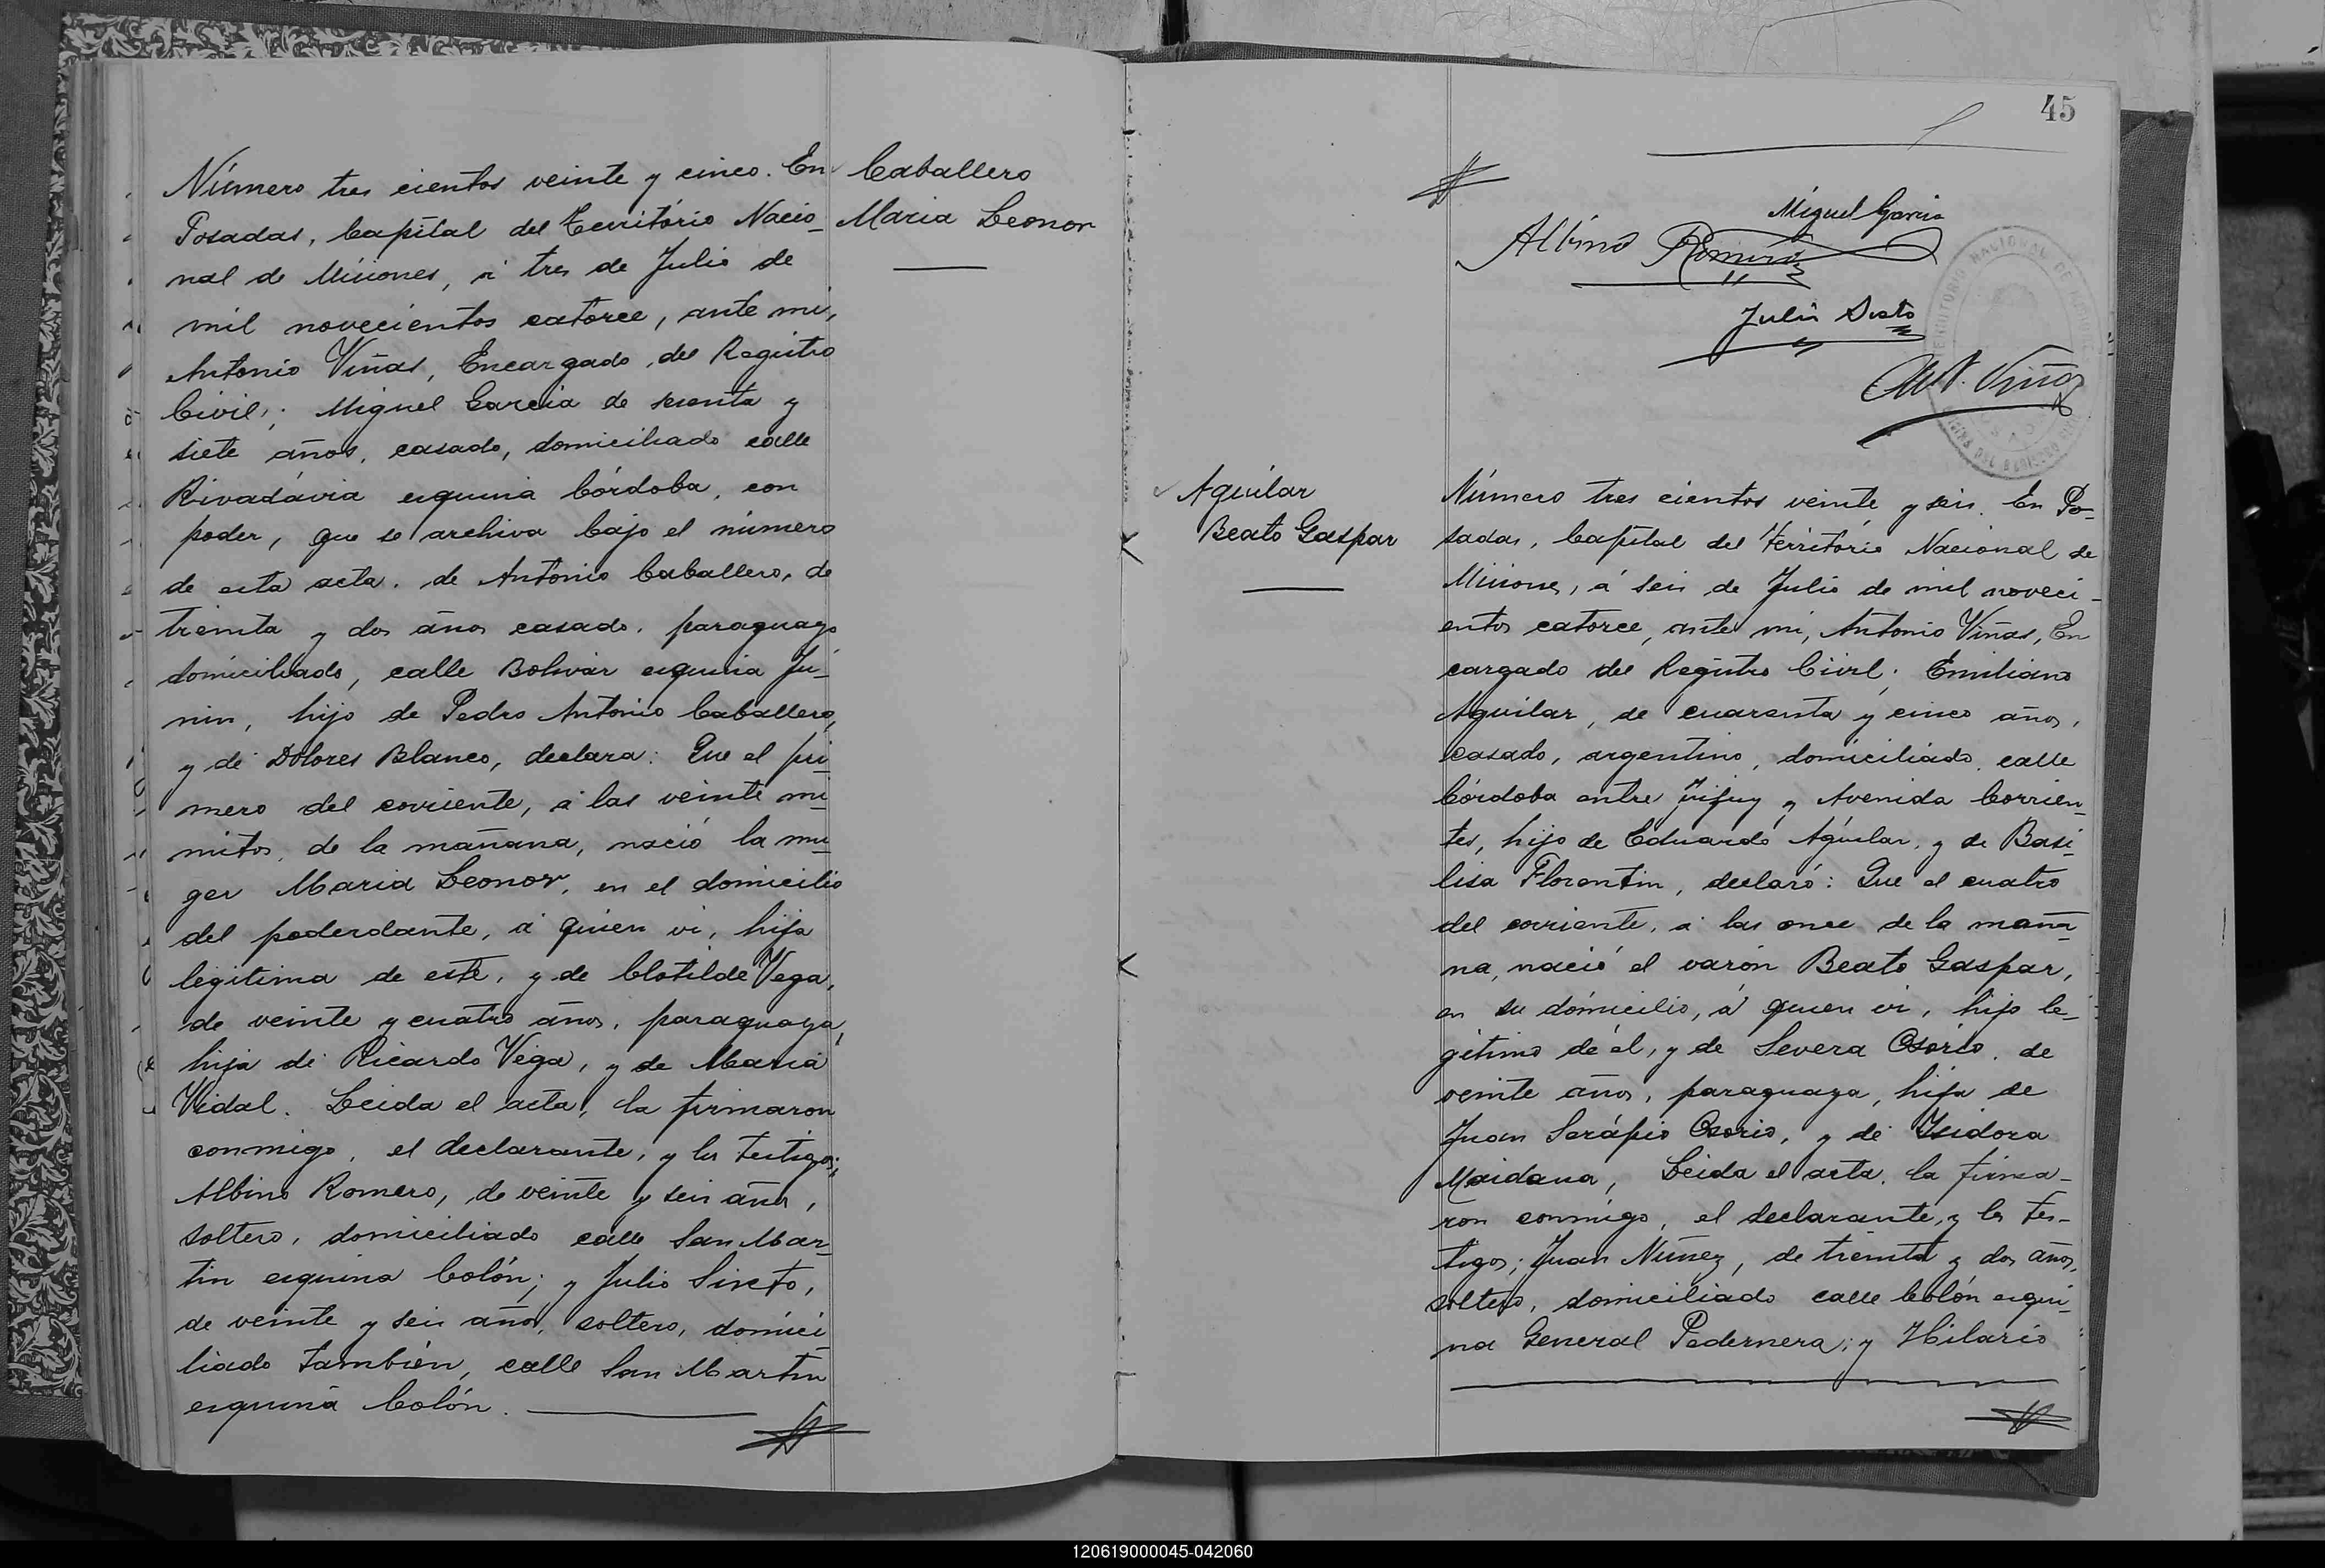 Número tres cientos veinte y cinco. En
Posadas, Capital del Território Nacio-
nal de Misiones, á tres de Julio de
mil novecientos catorce, ante mi,
Antonio Viñas, Encargado del Registro
Civil; Miguel Garcia de sesenta y
siete años, casado, domiciliado calle
Rivadávia esquina Córdoba, con
poder, que se archiva bajo el número
de esta acta, de Antonio Caballero, de
treinta y dos años casado, paraguayo
domiciliado, calle Bolivar esquina Ju-
nin, hijo de Pedro Antonio Caballero,
y de Dolores Blanco, declara: Que el pri-
mero del corriente, á las veinte mi-
nutos, de la mañana, nació la mu-
ger Maria Leonor, en el domicilio
del poderdante, á quien vi, hija
legitima de este, y de Clotilde Vega,
de veinte y cuatro años, paraguaya,
hija de Ricardo Vega, y de Maria
Vidal. Leida el acta, la firmaron
conmigo, el declarante, y los testigos;
Albino Romero, de veinte y seis años,
soltero, domiciliado calle San Mar-
tin esquina Colón; y Julio Sixto,
de veinte y seis años, soltero, domici-
liado también, calle San Martin
esquina Colón.
Caballero
Maria Leonor
45
Miguel Garcia
Albino Romero
Julio
Ant. Viñas
TERRITORIO NACIONAL DE MISIONES
Aguilar
Beato Gaspar
Número tres cientos veinte y seis. En Po-
sadas, Capital del Território Nacional de
Misiones, á seis de Julio de mil noveci-
entos catorce, ante mi, Antonio Viñas, En
cargado del Registro Civil; Emiliano
Aguilar, de cuarenta y cinco años,
casado, argentino, domiciliado, calle
Córdoba entre Jujuy y Avenida Corrien-
tes, hijo de Eduardo Aguilar, y de Basi-
lisa Florentin, declaró: Que el cuatro
del corriente, á las once de la maña-
na, nació el varón Beato Gaspar,
en su domicilio, á quien vi, hijo le-
gitimo de él, y de Severa Osório, de
veinte años, paraguaya, hija de
Juan Serápio Osorio, y de Isidora
Maidana, Leida el acta, la firma-
ron conmigo, el declarante, y los tes-
tigos; Juan Núñez, de treinta y dos años,
soltero, domiciliado calle Colón esqui-
na General Pedernera; y Hilario
120619000045-042060